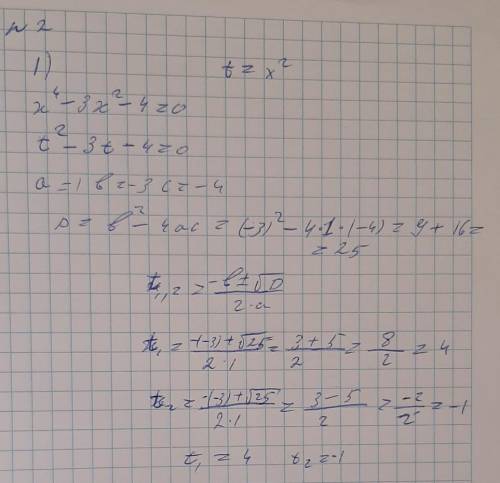 № 2
1) t = x²
x⁴ - 3x² - 4 = 0
t² - 3t - 4 = 0
a = 1 b = -3 c = -4
D = b² - 4ac = (-3)² - 4·1·(-4) = 9 + 16 =
= 25
t₁,₂ = (-b ± √D)/(2·a)
t₁ = (-(-3) + √25)/(2·1) = (3 + 5)/2 = 8/2 = 4
t₂ = (-(-3) + √25)/(2·1) = (3 - 5)/2 = -2/2 = -1
t₁ = 4 t₂ = -1